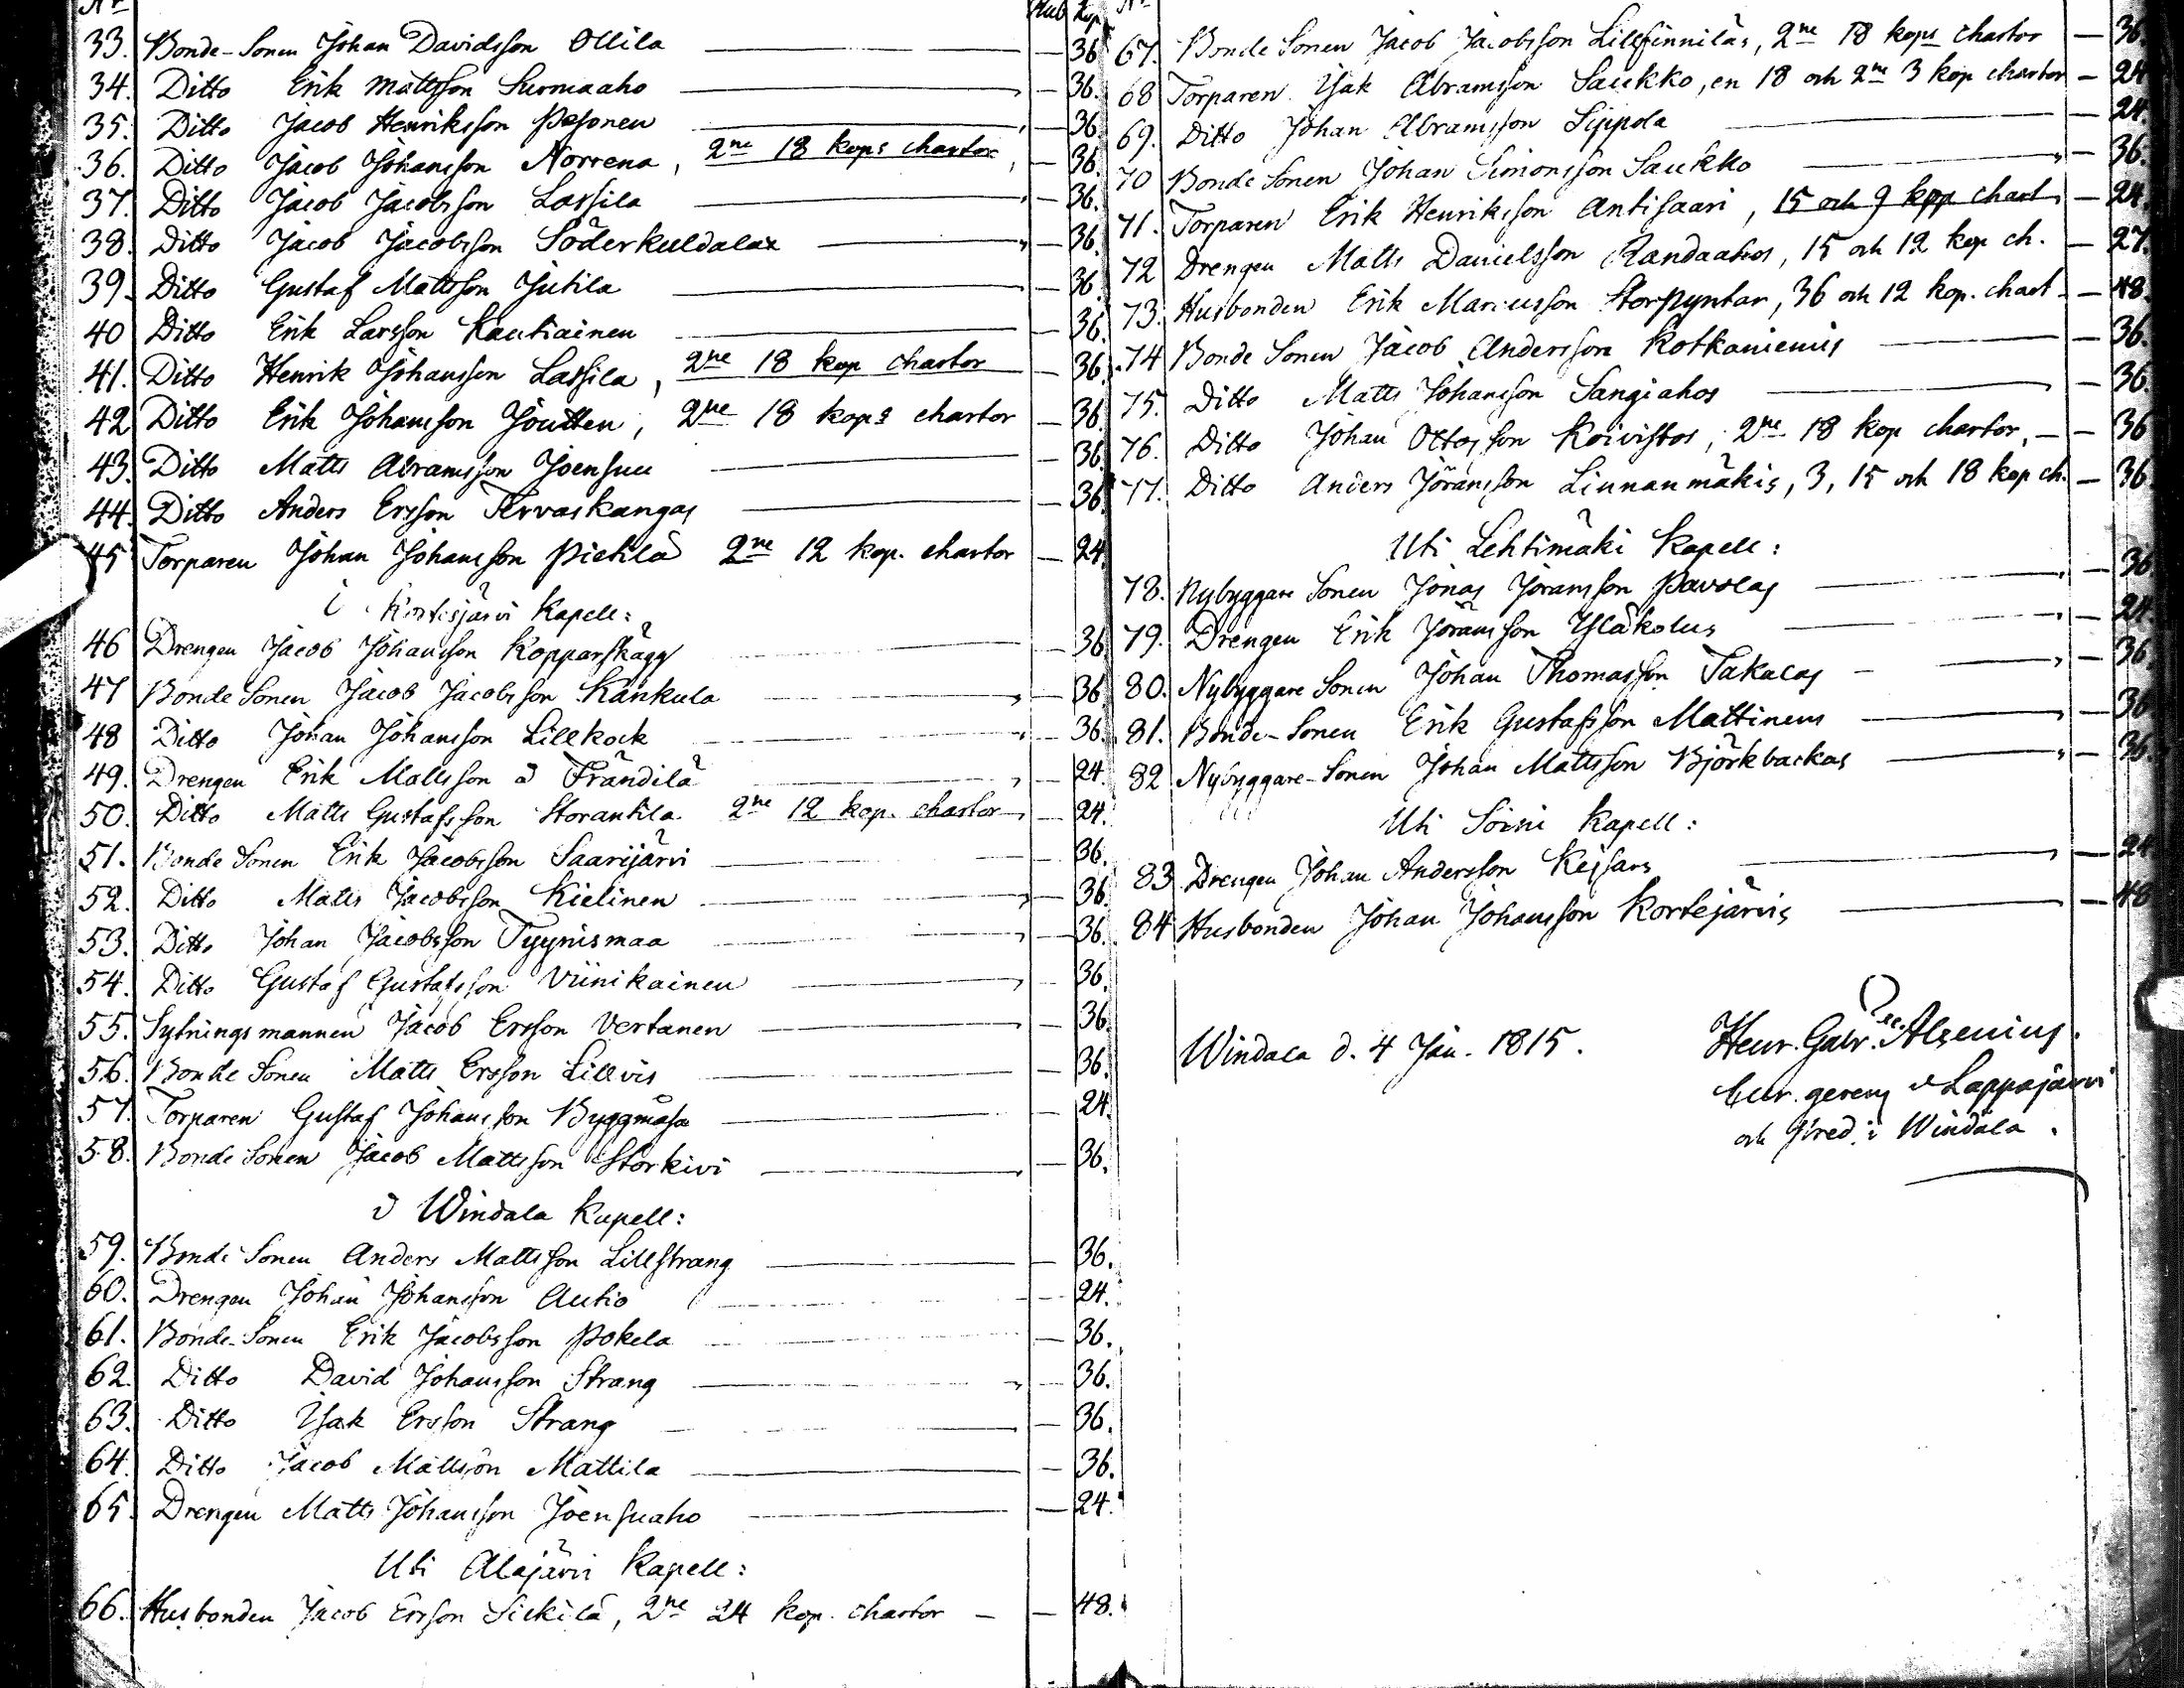 No Rub Kop
33. Bonde-Sonen Johan Davidsson Ollila — 36
34. Ditto Erik Mattsson Surmaaho — 36.
35. Ditto Jacob Henriksson Pesonen — 36
36. Ditto Jacob Johansson Norrena, 2ne 18 kops chartor — 36.
37. Ditto Jacob Jacobsson Lassila — 36.
38. Ditto Jacob Jacobsson Söderkuldalax — 36
39. Ditto Gustaf Mattsson Jutila — 36
40 Ditto Erik Larsson Kautiainen — 36.
41. Ditto Henrik Johansson Lassila, 2ne 18 kop chartor — 36.
42 Ditto Erik Johansson Joutten, 2ne 18 kops chartor — 36
43. Ditto Matts Abramsson Joensuu — 36
44. Ditto Anders Ersson Tervaskangas — 36
45 Torparen Johan Johansson Pietilä 2ne 12 kop. chartor — 24
i Kortesjärvi Kapell:
46 Drengen Jacob Johansson Kopparskägg — 36
47 Bonde Sonen Jacob Jacobsson Kankula — 36
48 Ditto Johan Johansson Lillkock — 36.
49. Drengen Erik Mattsson Frändilä — 24
50. Ditto Matts Gustafsson Storantila 2ne 12 kop. chartor — 24.
51. Bonde Sonen Erik Jacobsson Saarijärvi — 36.
52. Ditto Matts Jacobsson Kielinen — 36
53. Ditto Johan Jacobsson Tyynismaa — 36.
54. Ditto Gustaf Gustafsson Viinikainen — 36.
55. Sytningsmannen Jacob Ersson Vertanen — 36.
56. Bonde Sonen Matts Ersson Lillvis — 36.
57. Torparen Gustaf Johansson Byggmäsa — 24.
58. Bonde Sonen Jacob Mattsson Storkivi — 36.
i Windala Kapell:
59. Bonde Sonen Anders Mattsson Lillstrang — 36.
60. Drengen Johan Johansson Autio — 24.
61. Bonde-Sonen Erik Jacobsson Pokela — 36.
62. Ditto David Johansson Strang — 36.
63. Ditto Isak Ersson Strang — 36.
64. Ditto Jacob Mattson Mattila — 36.
65. Drengen Matts Johansson Joensuaho — 24.
Uti Alajärvi Kapell:
66. Husbonden Jacob Ersson Siekilä, 2ne 24 kop. chartor — 48.
67. Bonde Sonen Jacob Jacobsson Lillfinniläs, 2ne 18 kops chartor — 36.
68 Torparen Isak Abramsson Saukko, en 18 och 2ne 3 kop chartor — 24
69. Ditto Johan Abramsson Sippola — 24.
70 Bonde Sonen Johan Simonsson Saukko — 36.
71. Torparen Erik Henriksson Antisaari, 15 och 9 kop chart — 24.
72 Drengen Matts Danielsson Randaahos, 15 och 12 kop ch. — 27.
73. Husbonden Erik Mariusson Storpyntar, 36 och 12 kop. chart — 48.
74 Bonde Sonen Jacob Andersson Kotkaniemis — 36.
75. Ditto Matts Johansson Sangiahos — 36.
76. Ditto Johan Ottosson Koivistos, 2ne 18 kop chartor, — 36
77. Ditto Anders Jöransson Linnanmäkis, 3, 15 och 18 kop ch. — 36
Uti Lehtimäki Kapell:
78. Nybyggare Sonen Jonas Jöransson Pavolas — 36
79. Drengen Erik Jöransson Yläkolus — 24.
80. Nybyggare Sonen Johan Thomasson Takalas — 36
81. Bonde-Sonen Erik Gustafsson Mattinens — 36
82 Nybyggare-Sonen Johan Mattsson Björkbackas — 36.
Uti Soini Kapell:
83 Drengen Johan Andersson Kejsars — 24
84 Husbonden Johan Johansson Kortejärvis — 48
Windala d. 4 Jan. 1815.
Henr. Gabr. Alcenius.
Cur. gerens i Lappajärvi
och Pred. i Windala.